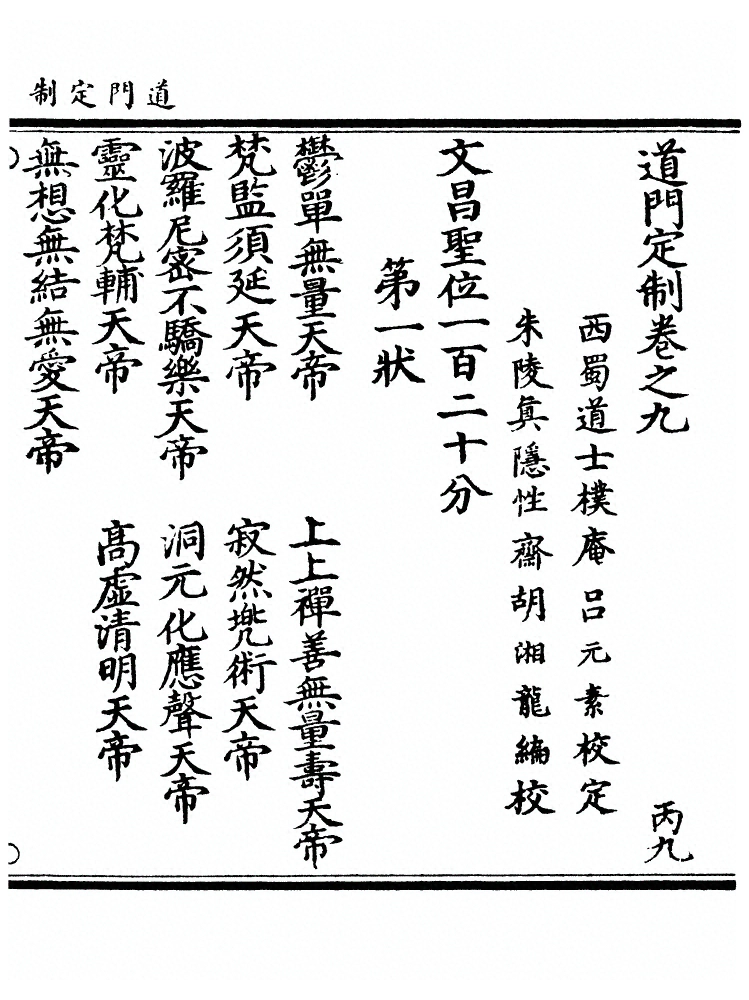 道門定制
道門定制卷之九
丙九
西蜀道士樸庵呂元素校定
朱陵眞隱性齋胡湘龍編校
文昌聖位一百二十分
第一狀
鬱單無量天帝
上上禪善無量壽天帝
梵監須延天帝
寂然兠術天帝
波羅尼密不驕樂天帝
洞元化應聲天帝
靈化梵輔天帝
高虛清明天帝
無想無結無愛天帝